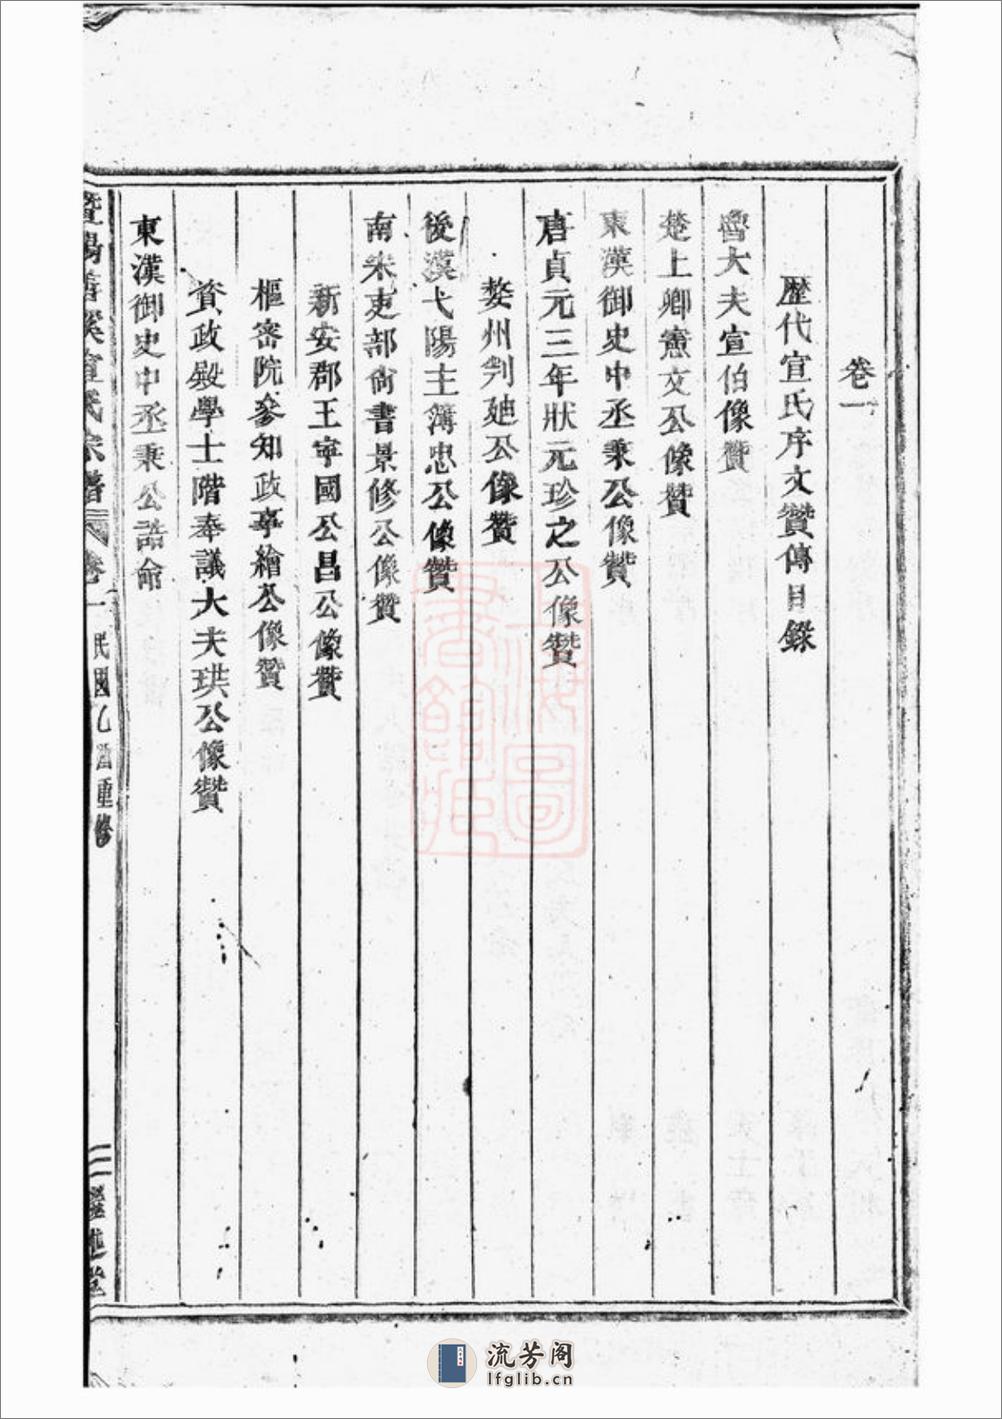 卷一
歷代宣氏序文贊傳目錄
魯大夫宣伯像贊
楚上卿憲文公像贊
東漢御史中丞秉公像贊
唐貞元三年狀元珍之公像贊
婺州判迪公像贊
後漢弋陽主簿忠公像贊
南宋吏部尚書景修公像贊
新安郡王寧國公昌公像贊
樞密院參知政事繪公像贊
資政殿學士階奉議大夫珙公像贊
東漢御史中丞秉公誥命
暨陽善溪宣氏宗譜 卷一 民國乙酉重修 二 繼述堂
上海圖書館藏
流芳阁
lfglib.cn